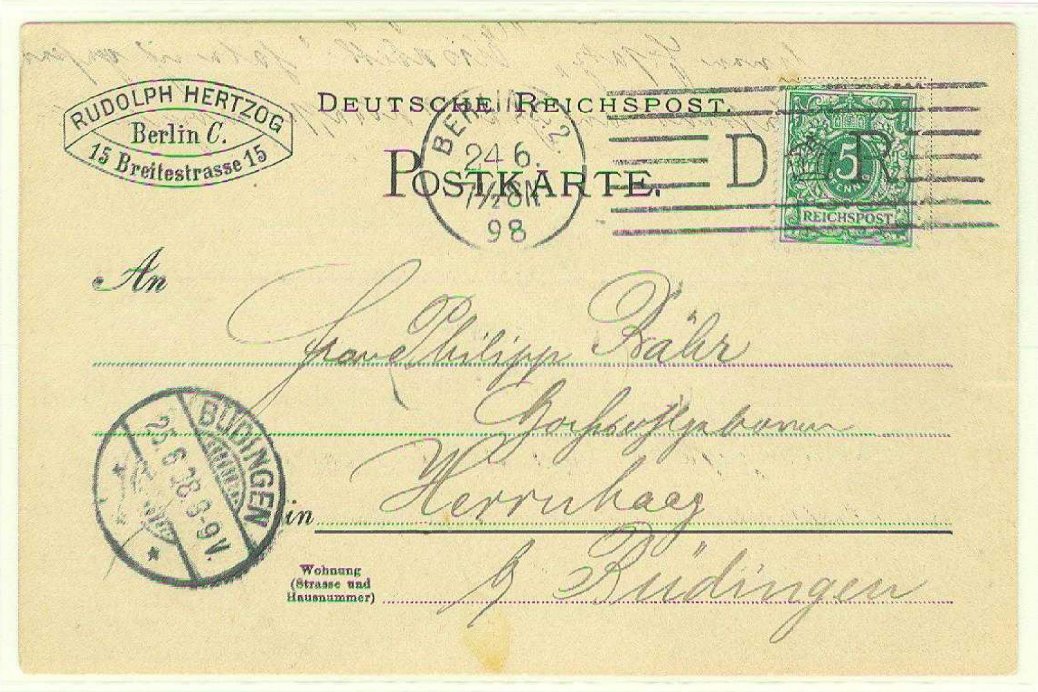 RUDOLPH HERTZOG
Berlin C.
15 Breitestrasse 15
DEUTSCHE REICHSPOST.
POSTKARTE.
BERLIN C. 2.
24 6.
7½-8N
98
D R
5
PFENNIG
REICHSPOST
An
Frau Philipp Bähr
Herrnhaag
in
b/ Büdingen
Wohnung
(Strasse und
Hausnummer)
BÜDINGEN
25.6.98.8-9V.